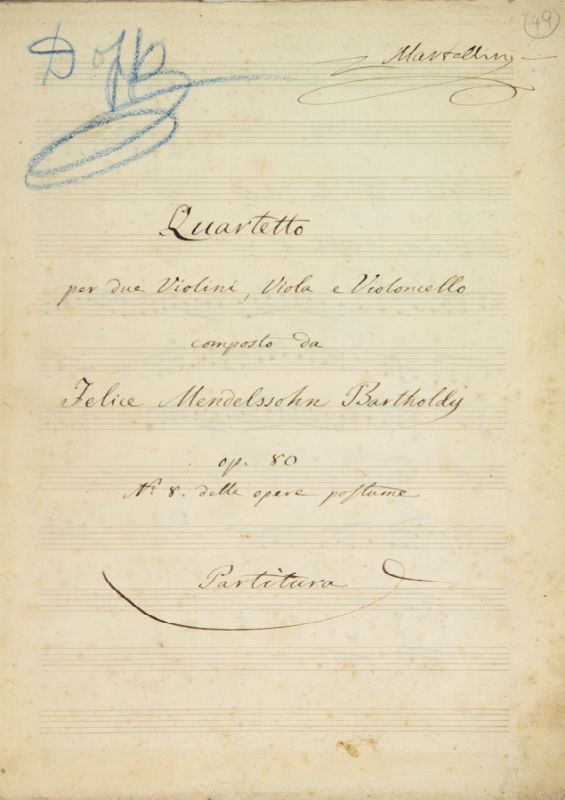 49
Martelli
Quartetto
per due Violini, Viola e Violoncello
composto da
Felice Mendelssohn Bartholdy
op. 80
N.º 8. delle opere postume
Partitura